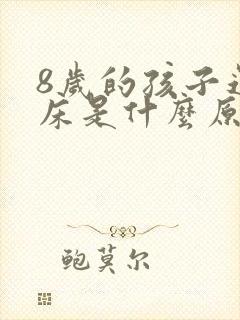 8歲的孩子
床是什麼原
鲍莫尔